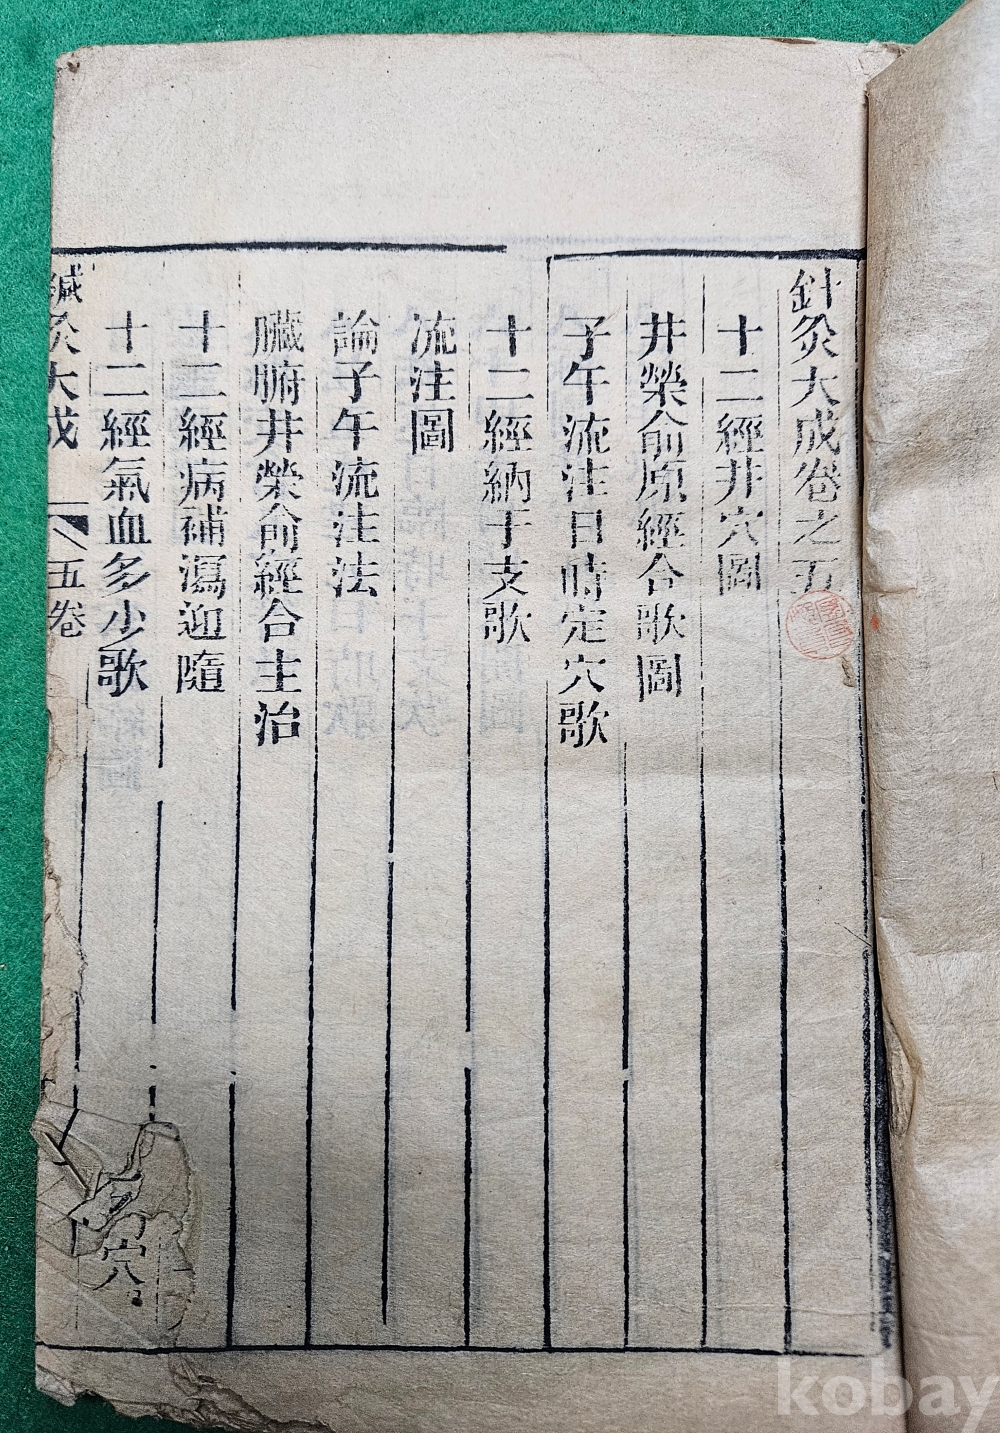 針灸大成卷之五
十二經井穴圖
井榮俞原經合歌圖
子午流注日時定穴歌
十二經納干支歌
流注圖
論子午流注法
臟腑井榮俞經合主治
十二經病補瀉迎隨
十二經氣血多少歌
鍼灸大成 五卷
穴
kobay